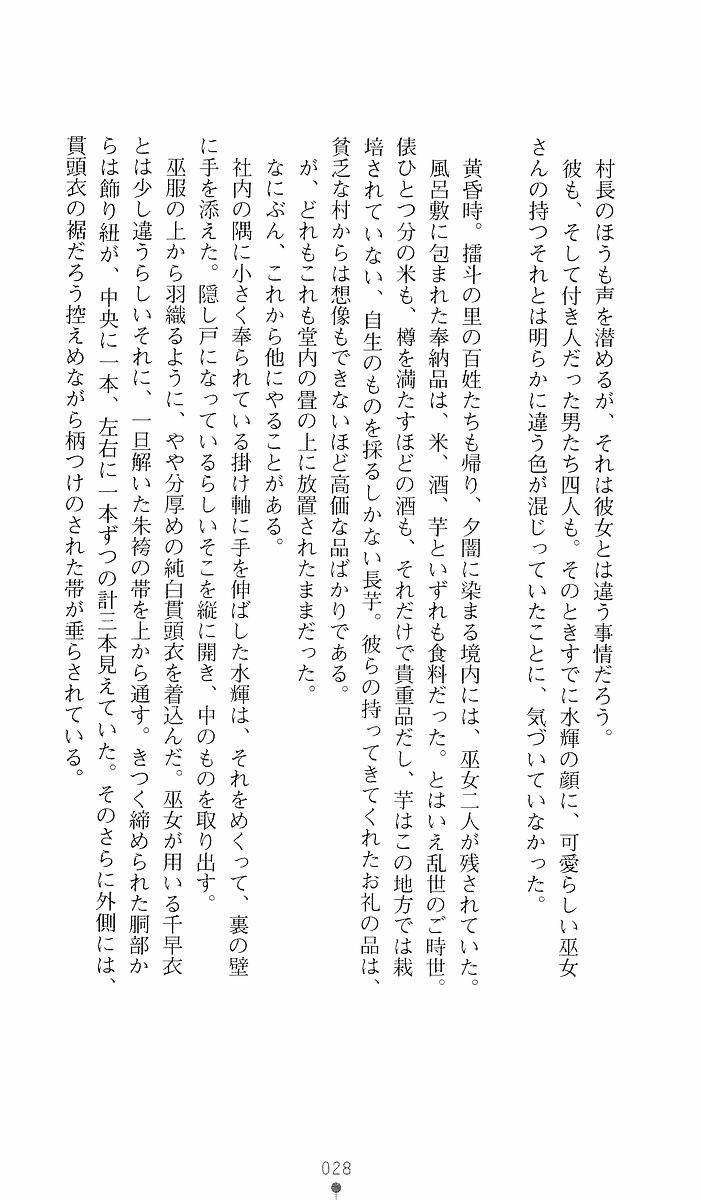 村長のほうも声を潜めるが、それは彼女とは違う事情だろう。
彼も、そして付き人だった男たち四人も。そのときすでに水輝の顔に、可愛らしい巫女
さんの持つそれとは明らかに違う色が混じっていたことに、気づいていなかった。
黄昏時。擂斗の里の百姓たちも帰り、夕闇に染まる境内には、巫女二人が残されていた。
風呂敷に包まれた奉納品は、米、酒、芋といずれも食料だった。とはいえ乱世のご時世。
俵ひとつ分の米も、樽を満たすほどの酒も、それだけで貴重品だし、芋はこの地方では栽
培されていない、自生のものを採るしかない長芋。彼らの持ってきてくれたお礼の品は、
貧乏な村からは想像もできないほど高価な品ばかりである。
が、どれもこれも堂内の畳の上に放置されたままだった。
なにぶん、これから他にやることがある。
社内の隅に小さく奉られている掛け軸に手を伸ばした水輝は、それをめくって、裏の壁
に手を添えた。隠し戸になっているらしいそこを縦に開き、中のものを取り出す。
巫服の上から羽織るように、やや分厚めの純白貫頭衣を着込んだ。巫女が用いる千早衣
とは少し違うらしいそれに、一旦解いた朱袴の帯を上から通す。きつく締められた胴部か
らは飾り紐が、中央に一本、左右に一本ずつの計三本見えていた。そのさらに外側には、
貫頭衣の裾だろう控えめながら柄つけのされた帯が垂らされている。
028